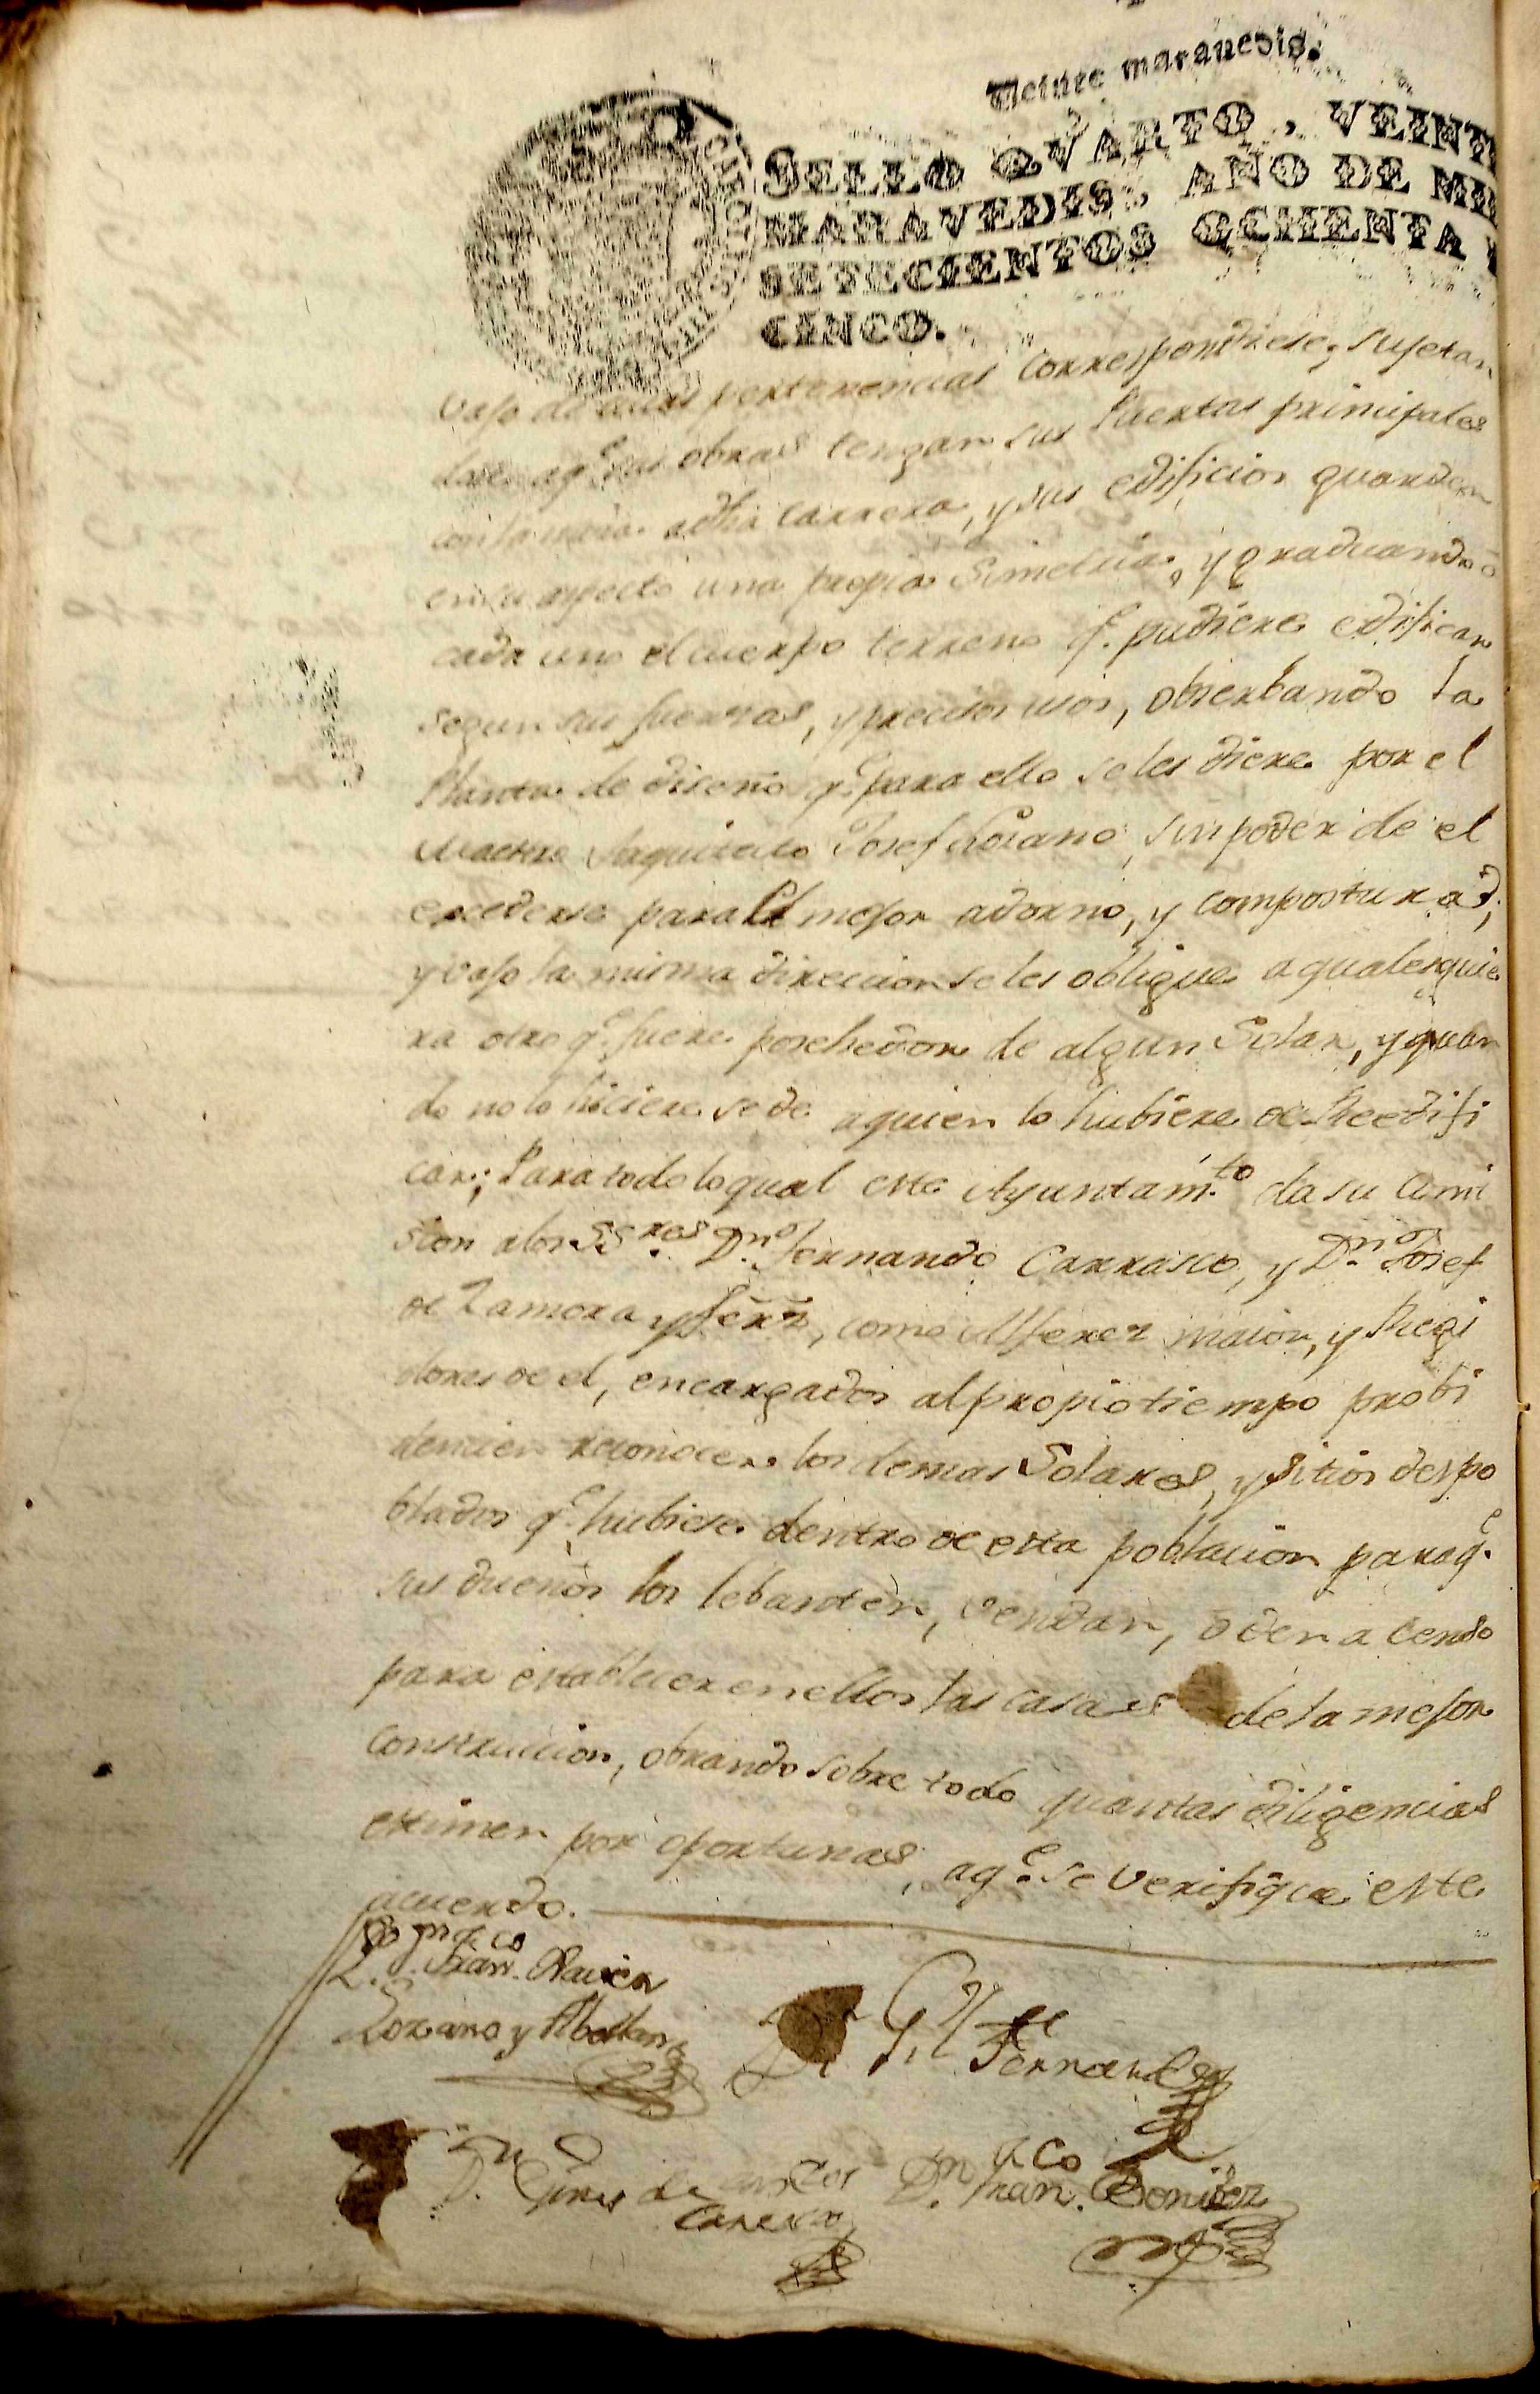 Veinte maravedis.
SELLO QVARTO, VEINTE
MARAVEDIS, AÑO DE MIL
SETECIENTOS OCHENTA Y
CINCO.
vajo de cuias pertenencias correspondiese; sujetan
dose aq.e sus obras tengan sus Puertas principales
con la adha carrera, y sus edificios guarden
en su aspecto una propia Simetria, y graduando
cada uno el cuerpo terreno q.e pudiere edificar
segun sus fuerzas, y precisos usos, obserbando la
Planta de diseño q.e para ello se les diere por el
Maestro Josef Lozano, sin poder de el
excederse para el mejor adorno, y compostura;
y vajo la misma direccion se les obligue a qualesquie
ra otro q.e fuere posehedor de algun Solar, y quan
do no lo hiciere se de a quien lo hubiere de Reedifi
car; Para todo lo qual este Ayuntam.to da su Comi
sion a los SS.res D.n Fernando Carrasco, y D.n Josef
de Zamora y Ferrz, como Alferez maior, y Regi
dores de el, encargados al propio tiempo probi
dencien reconocer los demas Solares, y sitios despo
blados q.e hubiese dentro de esta poblacion paraq.e
sus dueños los lebanten, vendan, ò den a censo
para establecer en ellos las casas de la mejor
construccion, obrando sobre todo quantas diligencias
estimen por oportunas, aq.e se verifique este
acuerdo.
L.do D.n Fran.co Xavier
Lozano y Abellan
Gil Fernandez
D.n Gines de
D.n Fran.co Beniter